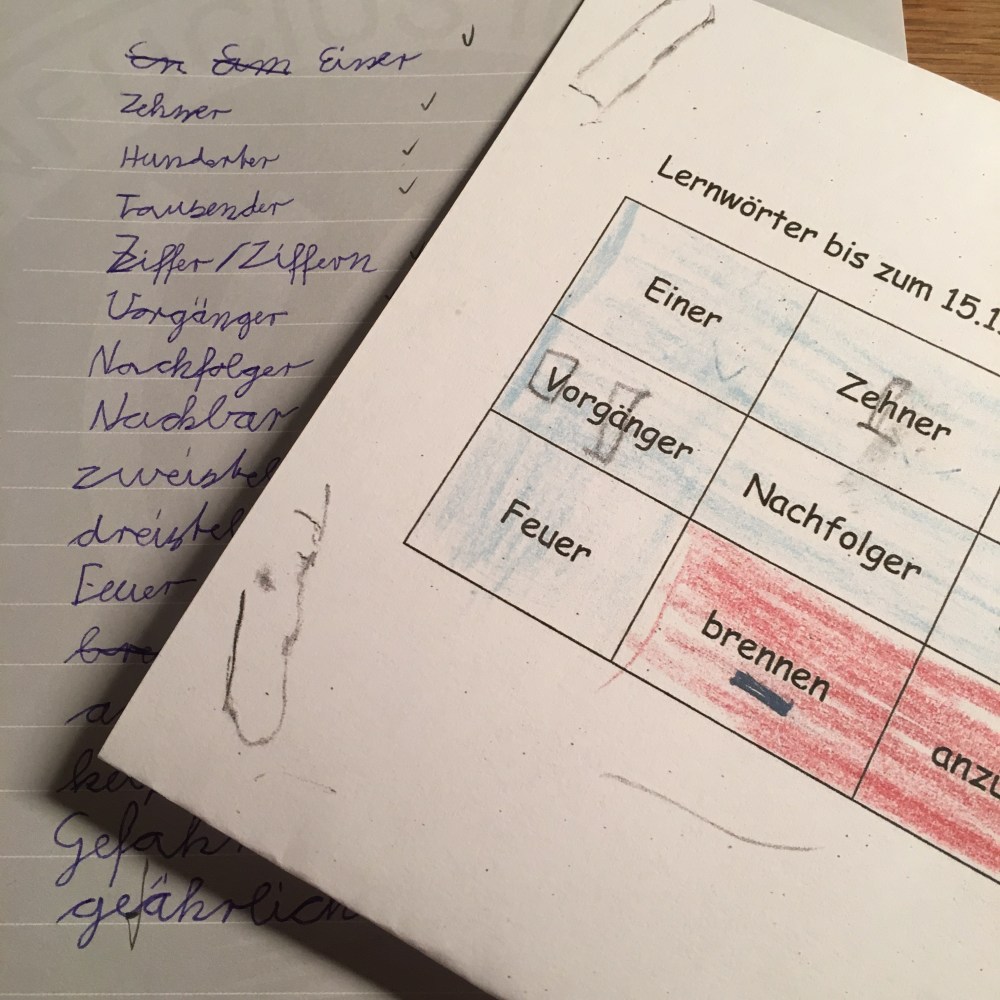 Einer
Zehner
Hunderter
Tausender
Ziffer/Ziffern
Vorgänger
Nachfolger
Nachbar
zweistel
dreistel
Feuer
bre
a
Gefah
geährlich
Lernwörter bis zum 15.1
Einer
Zehner
Vorgänger
Nachfolger
Feuer
brennen
anzu